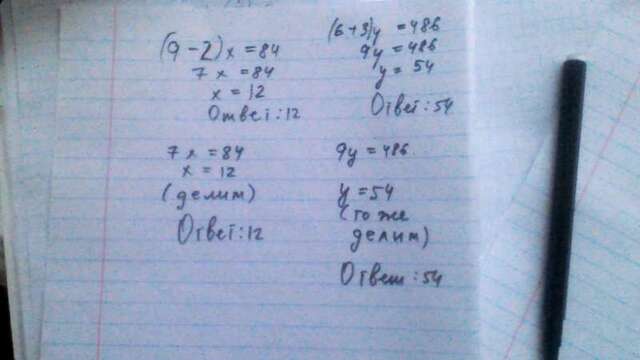 (9-2)x = 84
7x = 84
x = 12
Ответ: 12
7x = 84
x = 12
(делим)
Ответ: 12
(6+3)y = 486
9y = 486
y = 54
Ответ: 54
9y = 486
y = 54
(то же
делим)
Ответ: 54